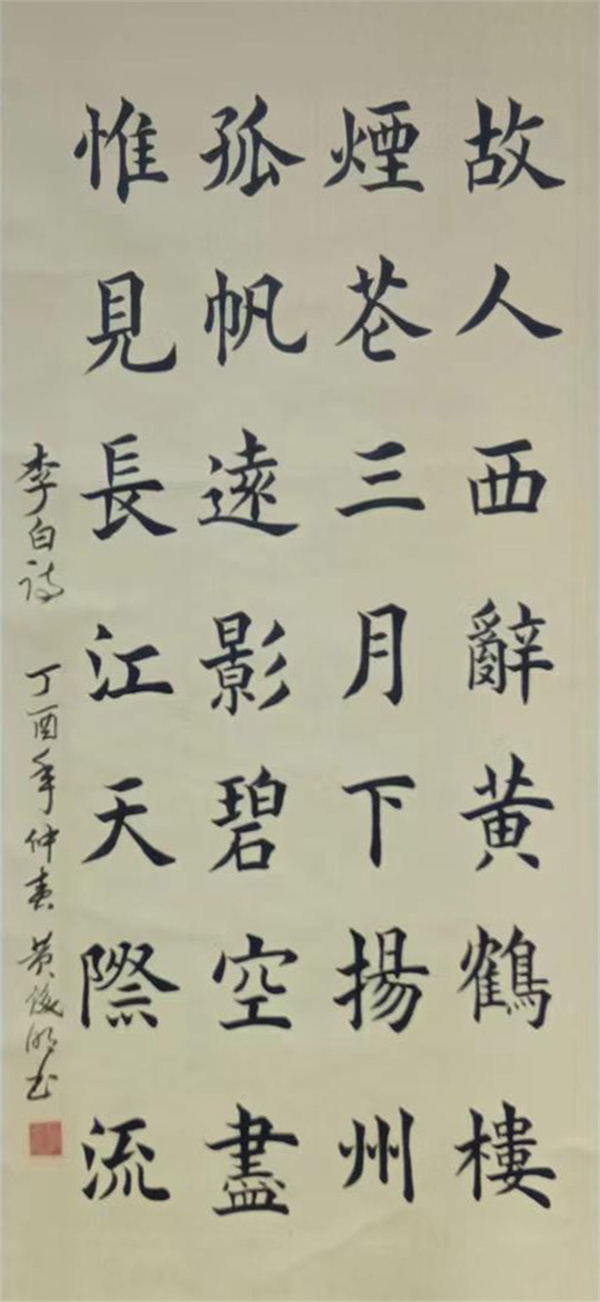 故人西辭黄鶴樓
煙花三月下揚州
孤帆遠影碧空盡
惟見長江天際流
李白诗 丁酉年仲春 黄俊明书